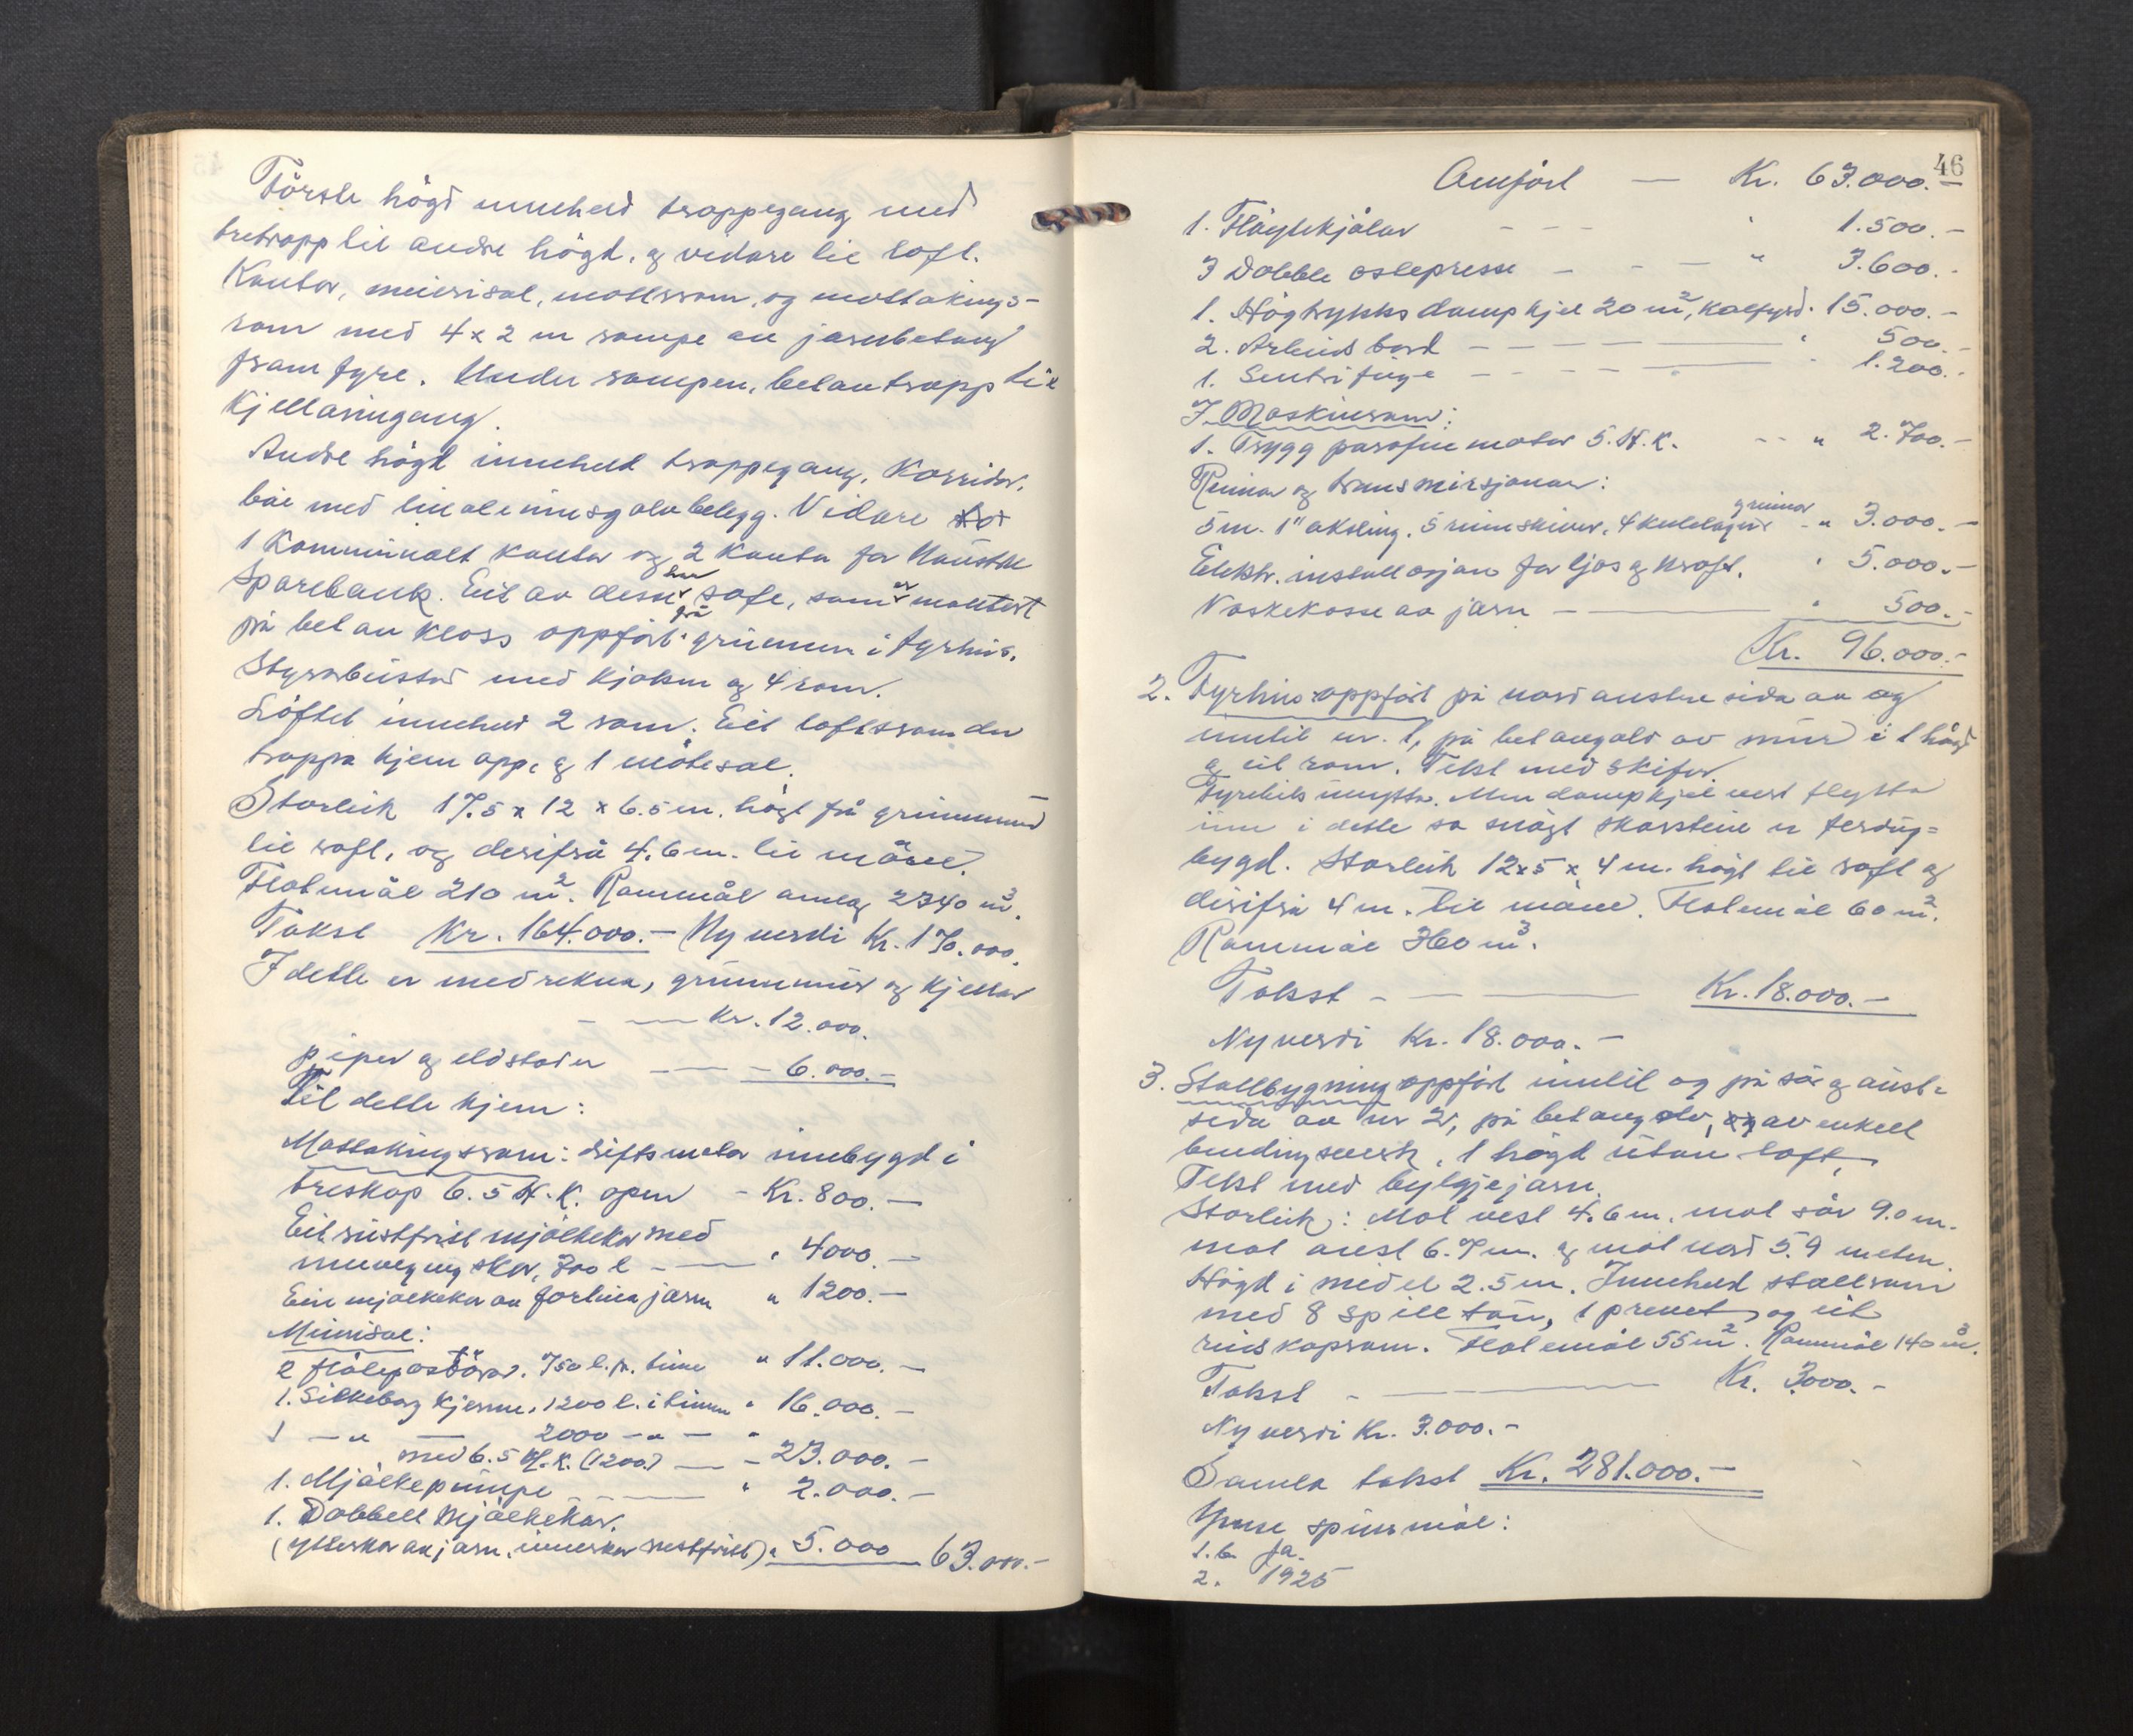 Första högd inneheld troppegang med
tretropp til andre högd, og vidare til loft.
Kontor, meierisal, mottsrom, og mottakings-
rom med 4 x 2 m rampe av jarnbetong
framfyre. Under rampen, betontropp til
kjellaringang.
Andre högd inneheld troppegang, Korridor,
båe med linoleumsgolvbelegg. Vidare
1 Kommunalt kontor og 2 kontor for Naustdal
Sparebank. Eit av desse har safe, som er montert
på betonkloss oppfört frå grunnen i fyrhus.
Styrarbustad med kjøken og 4 rom.
Löftet inneheld 2 rom. Eit loftsrom der
troppa kjem opp, og 1 mötesal.
Storleik 17.5 x 12 x 6.5 m. högt frå grunnmur
til roft, og derifrå 4.6 m. til möne.
Flatemål 210 m². Rommål omlag 2340 m³.
Takst Kr. 164.000.- Nyverdi Kr. 170.000.
I dette er medrekna, grunnmur og kjellar
- — Kr. 12.000.
piper og eldstader — — - 6.000.-
Til dette kjem:
Mottakingsrom: driftsmotor innebygd i
treskap 6.5 H.K. open - Kr. 800.-
Eit rustfritt mjølkekar med
innvegingskar, 300 l - — " 4000.-
Ein mjølkekar av fortinna jarn " 1200.-
Meierisal:
2 flötepastörar. 750 l. pr. time " 11.000.-
1. Silkeborg kjerne, 1200 l. i timen " 16.000.-
1 -"- — 2000 -"- - "
med 6.5 H.K. (1200.) — - 23.000.-
1. Mjølkepumpe — " 2.000.-
1. Dobbelt Mjølkekar.
(ytterkar av jarn, innerkar rustfritt) " 5.000 63.000.-
46
Omfört — Kr. 63.000.-
1. Fløytekjølar - - - " 1.500.-
3 Doble ostepresse - - - " 3.600.-
1. Högtrykks dampkjel 20 m², kolfyrd. 15.000.-
2. Arbeidsbord - - - " 500.-
1. Sentrifuge - - - " 1.200.-
I Maskinrom:
1. Trygg parafinmotor 5. H.K. - - " 2.700.-
Reimar og transmisjonar:
5 m. 1" aksling, 5 reimskiver, 4 kulelager - " 3.000.-
Elektr. installasjon for ljos og kraft. " 5.000.-
Vaskekasse av jarn - — " 500.-
Kr. 96.000.-
2. Fyrhus oppfört på nordaustre sida av og
inntil nr. 1, på betongolv av mur i 1 högd
og eit rom. Tekt med skifer.
Fyrehus unytta. Men dampkjel vert flytta
inn i dette so snøgt skorstein er ferdug-
bygd. Storleik 12x5 x 4 m. högt til roft og
derifrå 4 m. til möne. Flatemål 60 m².
Rommål 360 m³.
Takst - — Kr. 18.000.-
Nyverdi Kr. 18.000.-
3. Stallbygning oppfört inntil og på sör og aust-
sida av nr 2, på betongolv, av enkelt
bindingsverk, 1 högd utan loft,
Tekt med bylgjejarn.
Storleik: Mot vest 4.6 m, mot sör 9.0 m.
mot aust 6.7 m. og mot nord 5.9 meter.
Högd i medel 2.5 m. Inneheld stallrom
med 8 spiltau, 1 prevet, og eit
reidskapsrom. Flatemål 55 m². Rommål 140 m³.
Takst - — Kr. 3000.-
Nyverdi Kr. 3.000.-
Samla takst Kr. 281.000.-
Ymse spursmål:
1.b Ja.
2. 1925